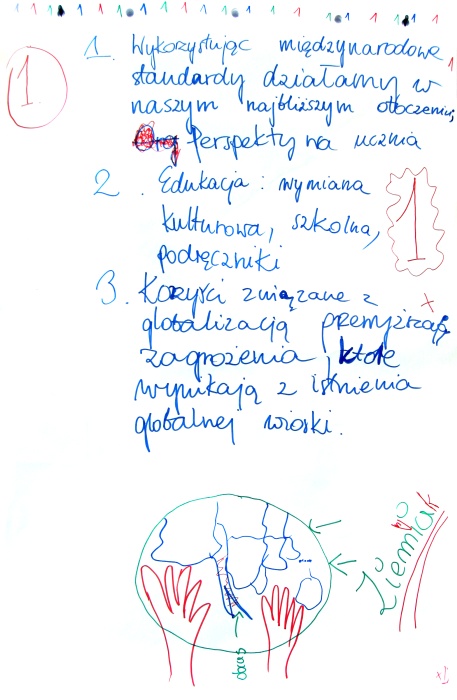 1
1. Wykorzystując międzynarodowe
standardy działamy w
naszym najbliższym otoczeniu,
Perspekty na ucznia
2. Edukacja: wymiana
kulturowa, szkolna,
podręczniki
1
3. Korzyści związane z
globalizacją
zagrożenia, które
wynikają z istnienia
globalnej wioski.
Ziemiak